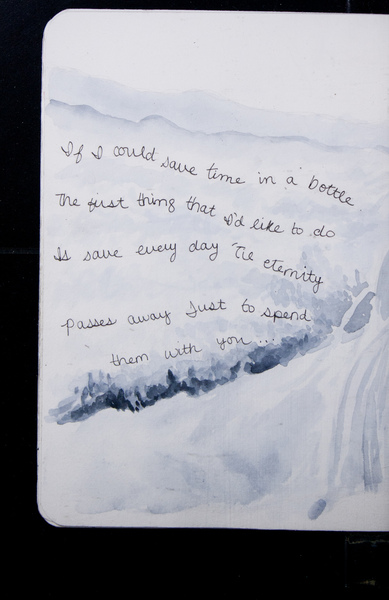 If I could save time in a bottle
The first thing that I'd like to do
Is save every day 'Tie eternity
passes away Just to spend
them with you...